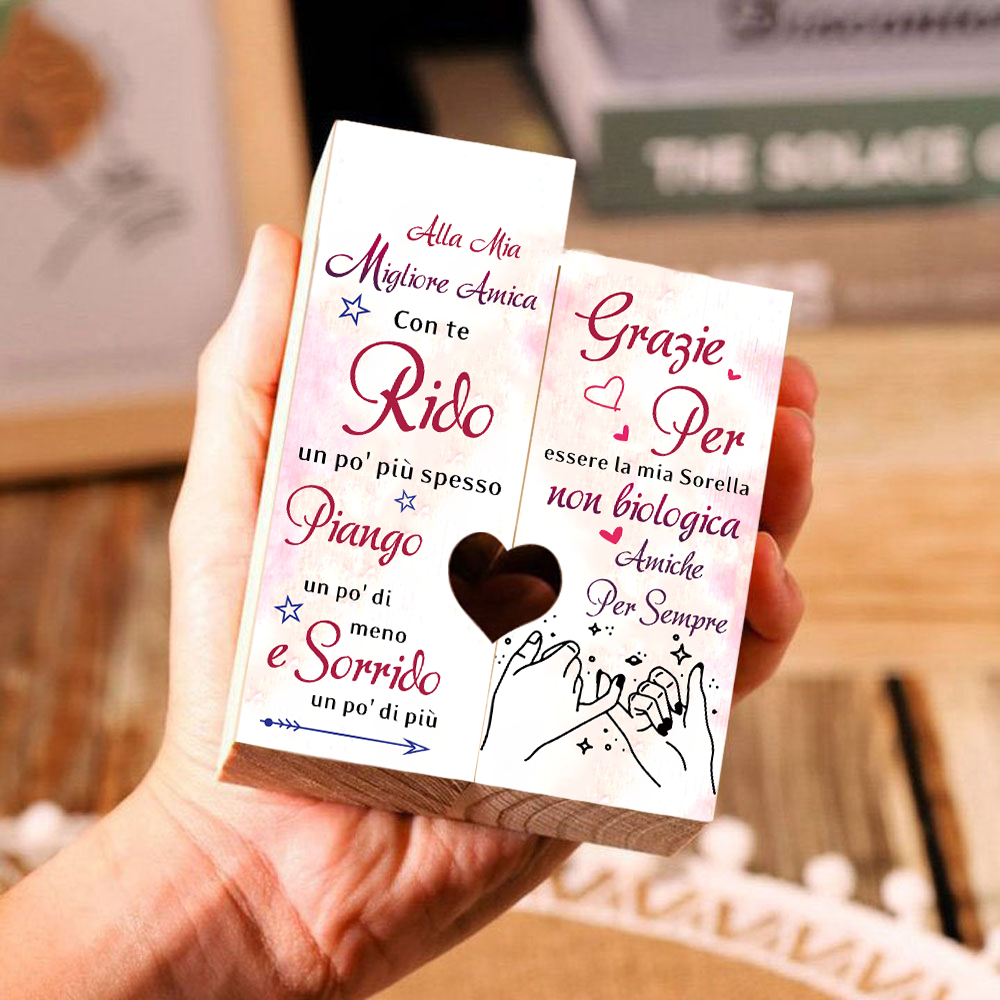 Alla Mia
Migliore Amica
Con te
Rido
un po' più spesso
Piango
un po' di
meno
e Sorrido
un po' di più
Grazie
Per
essere la mia Sorella
non biologica
Amiche
Per Sempre
THE SOLACE